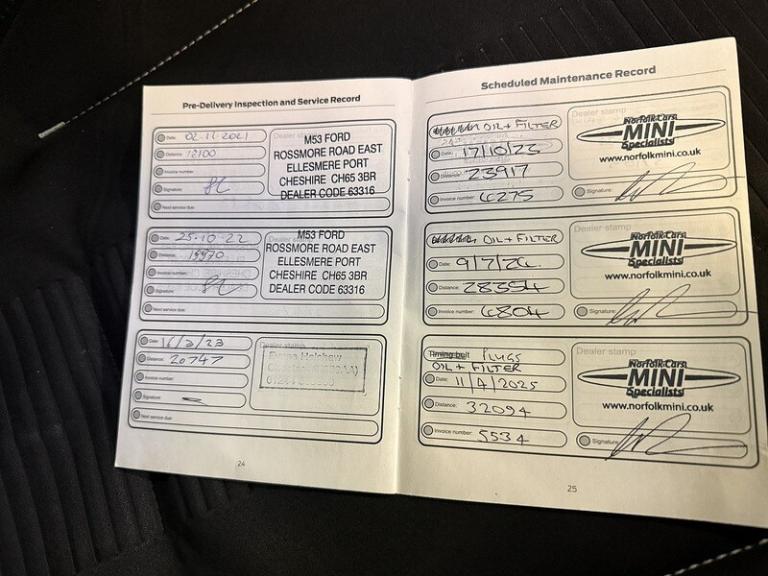 Pre-Delivery Inspection and Service Record
Date: 02.11.2021
Distance: 12100
Invoice number:
Signature:
Next service due:
Dealer stamp
M53 FORD
ROSSMORE ROAD EAST
ELLESMERE PORT
CHESHIRE CH65 3BR
DEALER CODE 63316
Date: 25.10.22
Distance:
Invoice number:
Signature:
Next service due:
M53 FORD
ROSSMORE ROAD EAST
ELLESMERE PORT
CHESHIRE CH65 3BR
DEALER CODE 63316
Date: 16/2/23
Distance: 20747
Invoice number:
Signature:
Next service due:
Dealer stamp
24
Scheduled Maintenance Record
OIL + FILTER
Date: 17/10/23
Distance: 23917
Invoice number: 4275
Dealer stamp
Norfolk Cars
MINI
Specialists
www.norfolkmini.co.uk
Signature:
OIL + FILTER
Date: 9/7/24
Distance: 28354
Invoice number: 4804
Dealer stamp
Norfolk Cars
MINI
Specialists
www.norfolkmini.co.uk
Signature:
Timing belt PLUGS
OIL + FILTER
Date: 11/4/2025
Distance: 32094
Invoice number: 5534
Dealer stamp
Norfolk Cars
MINI
Specialists
www.norfolkmini.co.uk
Signature:
25